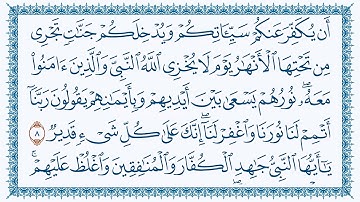 أَن يُكَفِّرَ عَنكُمْ سَيِّـَٔاتِكُمْ وَيُدْخِلَكُمْ جَنَّـٰتٍ تَجْرِى
مِن تَحْتِهَا ٱلْأَنْهَـٰرُ يَوْمَ لَا يُخْزِى ٱللَّهُ ٱلنَّبِىَّ وَٱلَّذِينَ ءَامَنُوا۟
مَعَهُۥ ۖ نُورُهُمْ يَسْعَىٰ بَيْنَ أَيْدِيهِمْ وَبِأَيْمَـٰنِهِمْ يَقُولُونَ رَبَّنَآ
أَتْمِمْ لَنَا نُورَنَا وَٱغْفِرْ لَنَآ ۖ إِنَّكَ عَلَىٰ كُلِّ شَىْءٍ قَدِيرٌ ٨
يَـٰٓأَيُّهَا ٱلنَّبِىُّ جَـٰهِدِ ٱلْكُفَّارَ وَٱلْمُنَـٰفِقِينَ وَٱغْلُظْ عَلَيْهِمْ ۚ